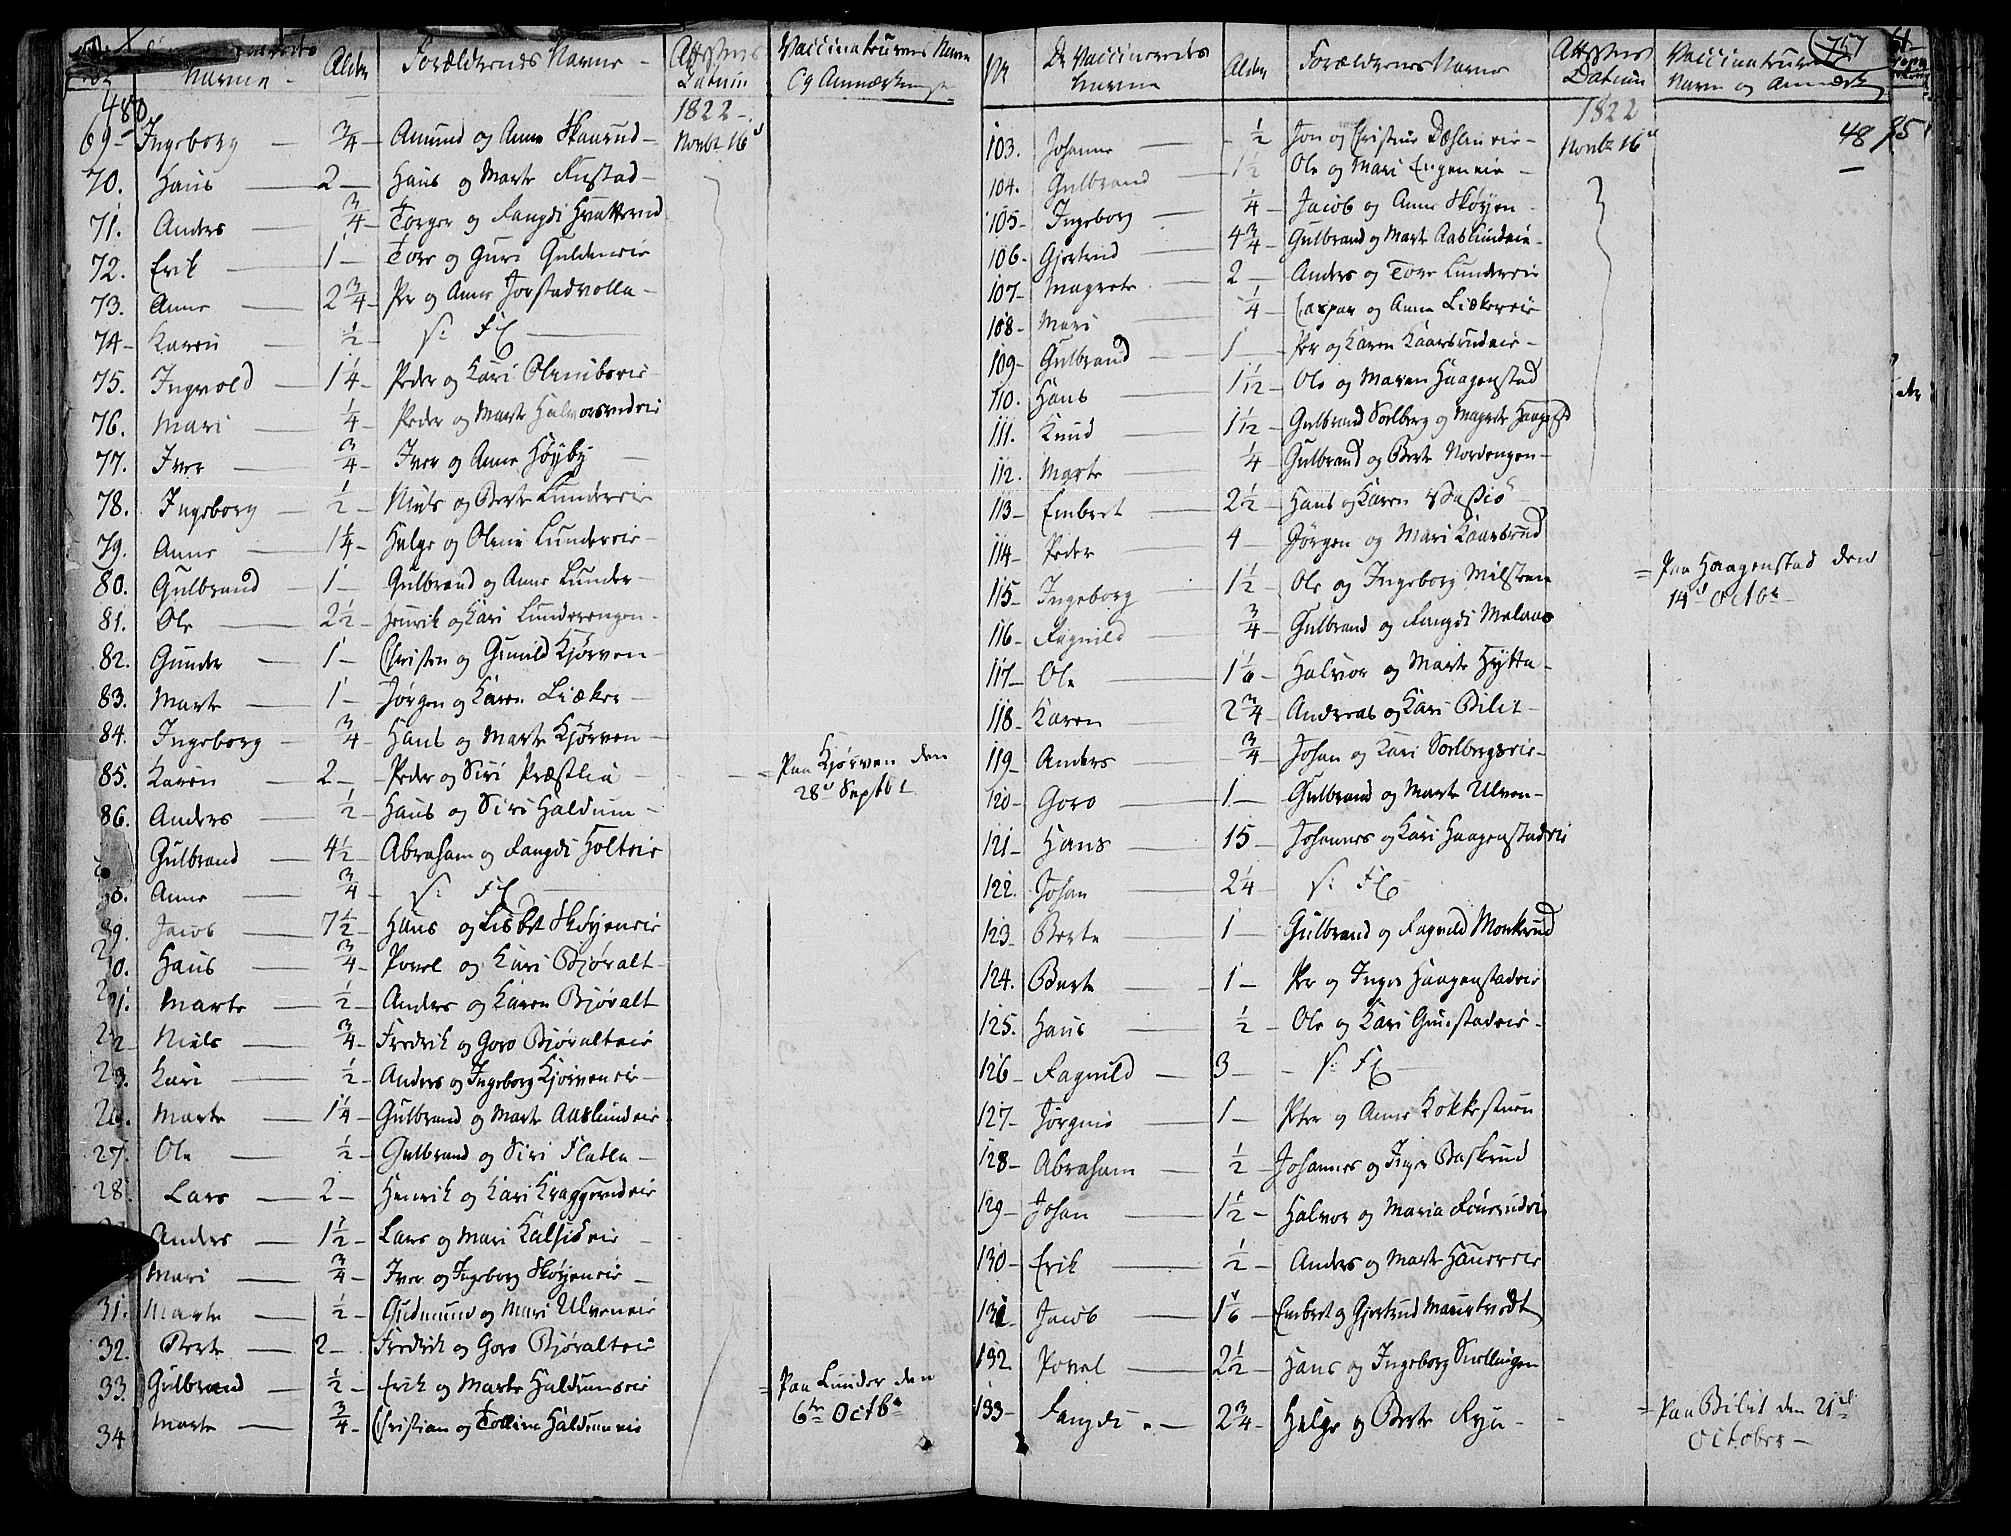 Navne
Alder
Forældrenes Navne
Attestens Datum
Vaccinateurens Navn
Og Anmærkninger
480
1822
69 Ingeborg 3/4 Amund og Anne Skaarud Novbr 16d
70. Hans 2 Hans og Marte Rustad
71. Anders 3/4 Torger og Rangdi Hvatterud
72. Erik 1 Tore og Guri Guldeneie
73. Anne 2 3/4 Per og Anne Jorstadvolla
74 Karen 1/2 S: F
75. Ingvold 1 1/4 Peder og Kari
76. Mari 1/4 Peder og Marte Halvorsrudeie
77. Iver 3/4 Iver og Anne Høyby
78. Ingeborg 1/2 Niels og Berte Lundereie
79. Anne 1 1/4 Helge og Oline Lundereie
80. Gulbrand 1 Gulbrand og Anne Lunder
81. Ole 2 1/2 Henrik og Kari Lunderengen
82. Gunder 1 Christen og Gunild Kjørven
83. Marte 1 Jørgen og Karen Liæker
84. Ingeborg 3/4 Hans og Marte Kjørven
85. Karen 2 Peder og Siri Præstlia = Paa Kjørven den
28d Septbr
86. Anders 1/2 Hans og Siri Haldum
Gulbrand 4 1/2 Abraham og Rangdi Holteie
Anne 3/4 S: F
89. Jacob 7 1/2 Hans og Lisbet Skøyeneie
Hans 3/4 Povel og Kari Bjøralt
Marte 1/2 Anders og Karen Bjøralt
Niels 3/4 Fredrik og Goro Bjøralteie
Kari 1/2 Anders og Ingeborg Kjørveneie
Marte 1 1/4 Gulbrand og Marte Aaslundeie
27. Ole 1/2 Gulbrand og Siri Flatla
28. Lars 2 Henrik og Kari Kraggerudeie
Anders 1 1/2 Lars og Mari
Mari 3/4 Iver og Ingeborg Skøyeneie
31. Marte 1/2 Gudmund og Mari Ulveneie
32. Berte 2 Fredrik og Goro Bjøralteie
33. Gulbrand 1/2 Erik og Marte Haldumseie = Paa Lunder den
6te Octbr
34 Marte 3/4 Christian og Haldumeie
Nr
De Vaccineredes Navne
Alder
Forældrenes Navne
Attestens Datum
Vaccinateurens
Navn og Anmærk
757
1822
103. Johanne 1/2 Jon og Christine Dæhlineie Novbr 16d 48
104. Gulbrand 1 1/2 Ole og Mari Engeneie
105 Ingeborg 1/4 Jacob og Anne Skøyen
106 Gjertrud 4 3/4 Gulbrand og Marte Aaslundeie
107 Magrete 2 Anders og Tore Lundereie
108 Mari 1/4 Caspar og Anne Liækereie
109 Gulbrand 1 Per og Karen Kaarsrudeie
110. Hans 1 1/12 Ole og Maren Haagenstad
111. Knud 1 1/12 Gulbrand Solberg og Magrete
112. Marte 1/4 Gulbrand og Berte Nordengen
113 Embret 2 1/2 Hans og Karen
114 Peder 4 Jørgen og Mari Kaarsrud
115 Ingeborg 1 1/2 Ole og Ingeborg = Paa Haagenstad den
14d Octbr
116 Ragnild 3/4 Gulbrand og Rangdi
117 Ole 1 1/6 Halvor og Marte Hytta
118 Karen 2 3/4 Andreas og Kari Bilit
119 Anders 3/4 Johan og Kari Solbergseie
120 Goro 1 Gulbrand og Marte Ulven
121 Hans 15 Johannes og Kari Haagenstadeie
122. Johan 2 1/4 S: F
123 Berte 1 Gulbrand og Ragnild Monkrud
124. Berte 1 Per og Inger Haagenstadeie
125. Hans 1/2 Ole og Kari
126 Ragnild 3 S: F
127 Jørgine 1 Peter og Anne Kokkestuen
128 Abraham 1/2 Johannes og Inger Baskrud
129 Johan 1 1/2 Halvor og Maria
130 Erik 1/2 Anders og Marte
131 Jacob 1 1/6 Embret og Gjertrud
132 Povel 2 1/2 Hans og Ingeborg
133 Rangdi 2 3/4 Helge og Berte Rya = Paa Bilit den 21de
October